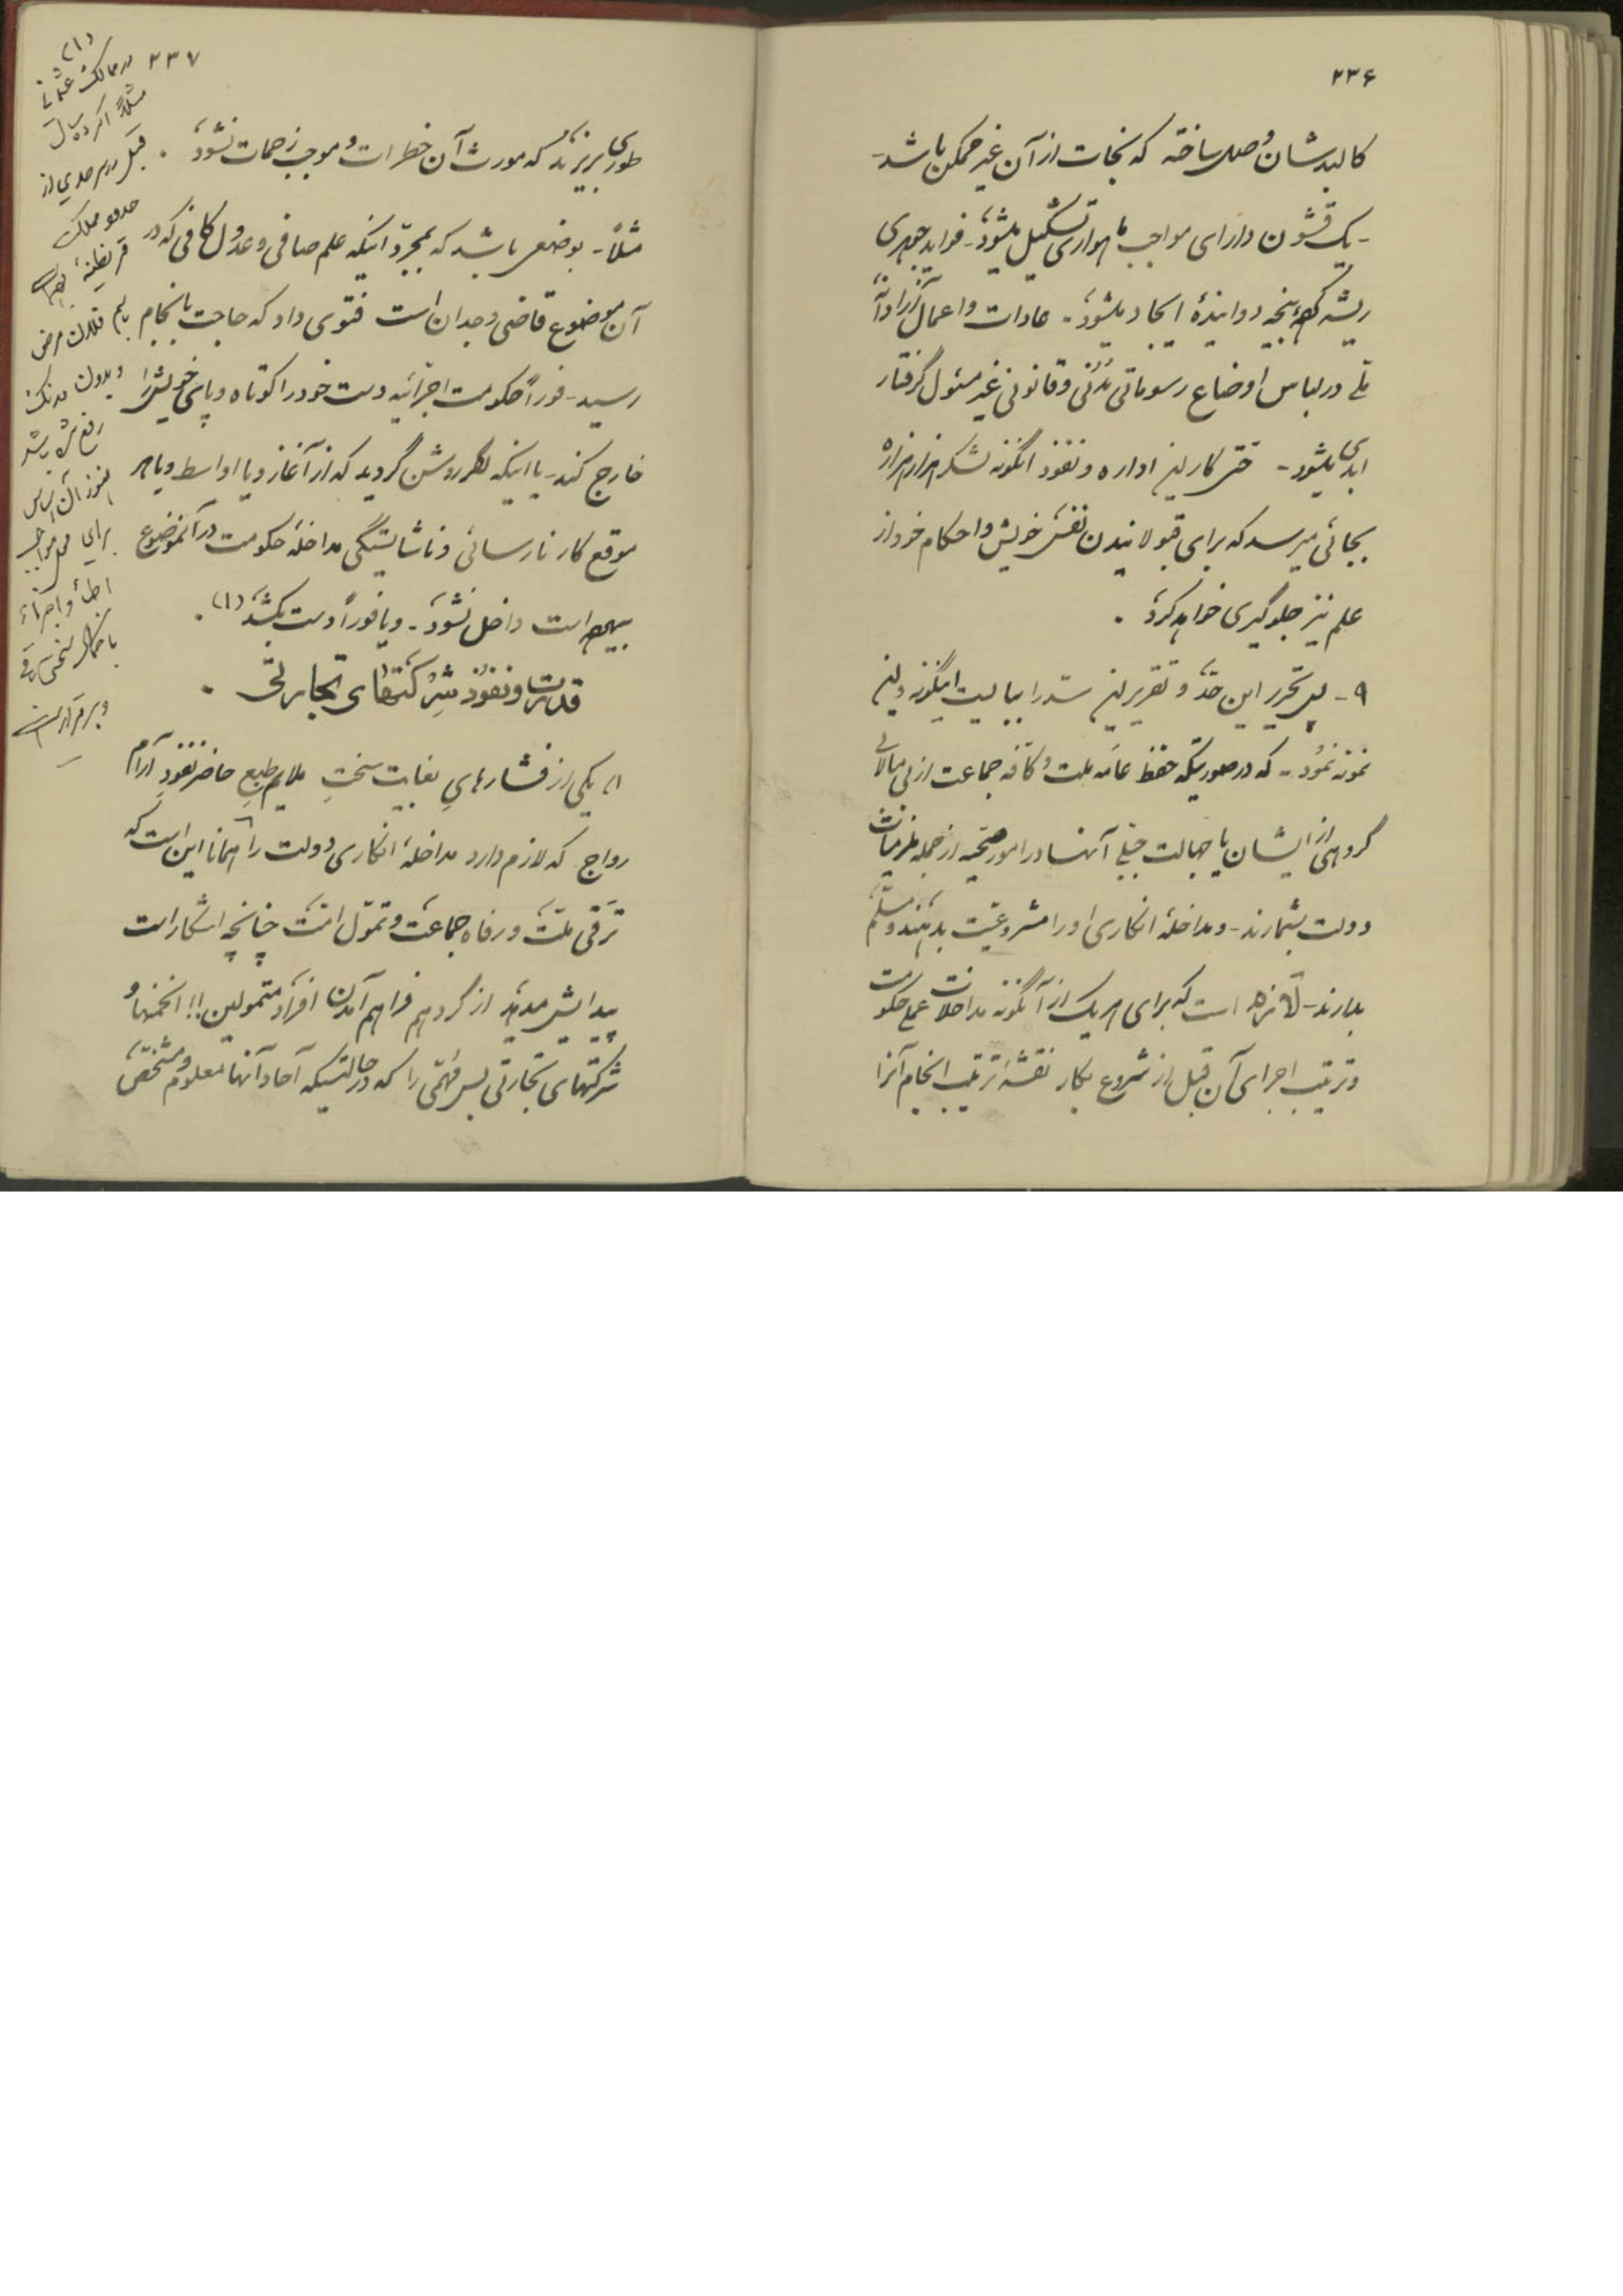 ۲۳۶
کالبدشان وصل ساخته که نجات از آن غیر ممکن باشد-
- یک قشون دارای مواجب ماهواری تشکیل میشود- فواید جوهری
ریشه پنجه دوانیدهٔ ایجاد میشود- عادات و اعمال آزادانهٔ
ملی در لباس اوضاع رسوماتی مدنی و قانونی غیر مسئول گرفتار
ابدی میشود- حتی کار این اداره و نفوذ اینگونه لشکر هزار هزاره
بجائی میرسد که برای قبولانیدن نفس خویش و احکام خود از
علم نیز جلوگیری خواهد کرد.
۹- پس تحریر این حد و تقریر این سد را ببایست اینگونه
نمونه نمود- که در صورتیکه حفظ عامه ملت و کافه جماعت از بی مبالاتی
گروهی از ایشان یا جهالت جبلی آنها در امور صحیه از جمله فرضیات
دولت بشمارند- و مداخلهٔ انکاری او را مشروعیت بدهند و مسلم
بدارند- است که برای هر یک از آنگونه مداخلات عمل حکومت
و ترتیب اجرای آن قبل از شروع بکار نقشه ترتیب انجام آنرا
۲۳۷
طوری بریزند که مورث آن خطرات و موجب زحمات نشود.
مثلاً- بوضعی باشد که بمجرد اینکه علم صافی و عدول کافی که در
آن موضوع قاضی وجدان است فتوی داد که حاجت بانجام
رسید- فوراً حکومت اجرائیه دست خود را کوتاه و پای خویش را
خارج کند- یا اینکه روشن گردید که از آغاز و یا اواسط و یا هر
موقع کار نارسائی و ناشایستگی مداخلهٔ حکومت در آنموضوع
است داخل نشود- و یا فوراً دست بکشد (۱).
قدرت و نفوذ شرکتهای تجارتی.
یکی از فشارهای بغایت سخت ملایم طبع حاضر نفوذ آرام
رواج که لازم دارد مداخلهٔ انکاری دولت را همانا این است که
ترقی ملت و رفاه جماعت و تمول امت چنانچه آشکار است
پیدایش از گرد هم فراهم آمدن افراد متمولین!! انجمنها و
شرکتهای تجارتی بس مهمی را که در حالتیکه آحاد آنها معلوم و مشخص
(۱)
در ممالک عثمانی
مثلاً اگر ده سال
قبل در سرحدی از
حدود مملکت
بدون درنگ
هنوز آن اساس
برای
و برقرار است